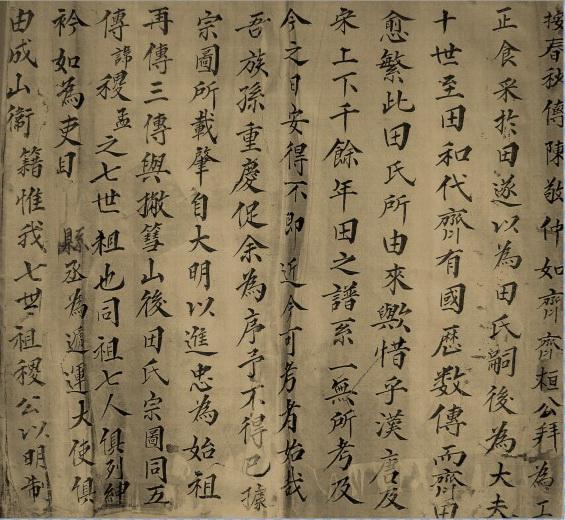 按春秋傳陳敬仲如齊齊桓公拜為工
正食采於田遂以為田氏嗣後為大夫
十世至田和代齊有國歷数傳而齊田
愈繁此田氏所由來歟惜乎漢唐及
宋上下千餘年田之譜系一無所考及
今之日安得不即近今可考者始哉
吾族孫重慶促余為序予不得已據
宗圖所載肇自大明以進忠為始祖
再傳三傳與撒山後田氏宗圖同五
傳諱稷孟之七世祖也同祖七人俱列紳
衿如為吏目縣丞為遞運大使俱
由成山衛籍惟我七世祖稷公以明制